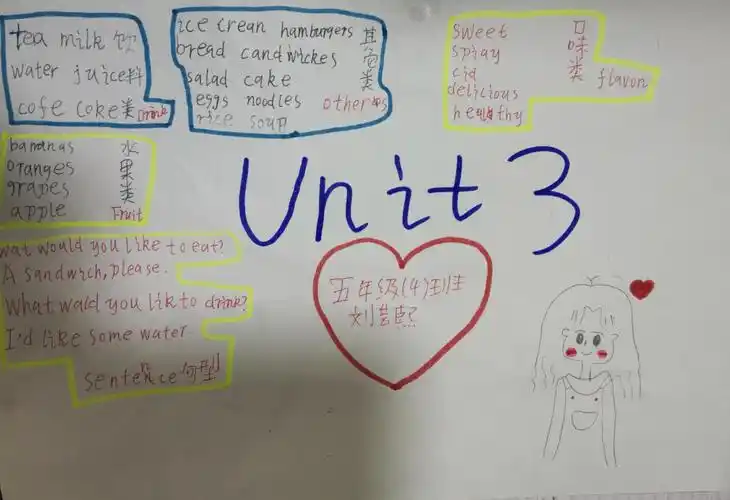 tea milk 饮
water juice料
cofe coke类 Drink
ice crean hamburgers 其
bread candwickes 它
salad cake 类
eggs noodles others
rice soup
sweet 口
spiay 味
cid 类 flavor
delicious
healthy
bananas 水
oranges 果
grapes 类
apple Fruit
Unit 3
wat would you like to eat?
A sandwich,please.
What wald you lik to drink?
I'd like some water
sentence 句型
五年级(4)班
刘芸熙